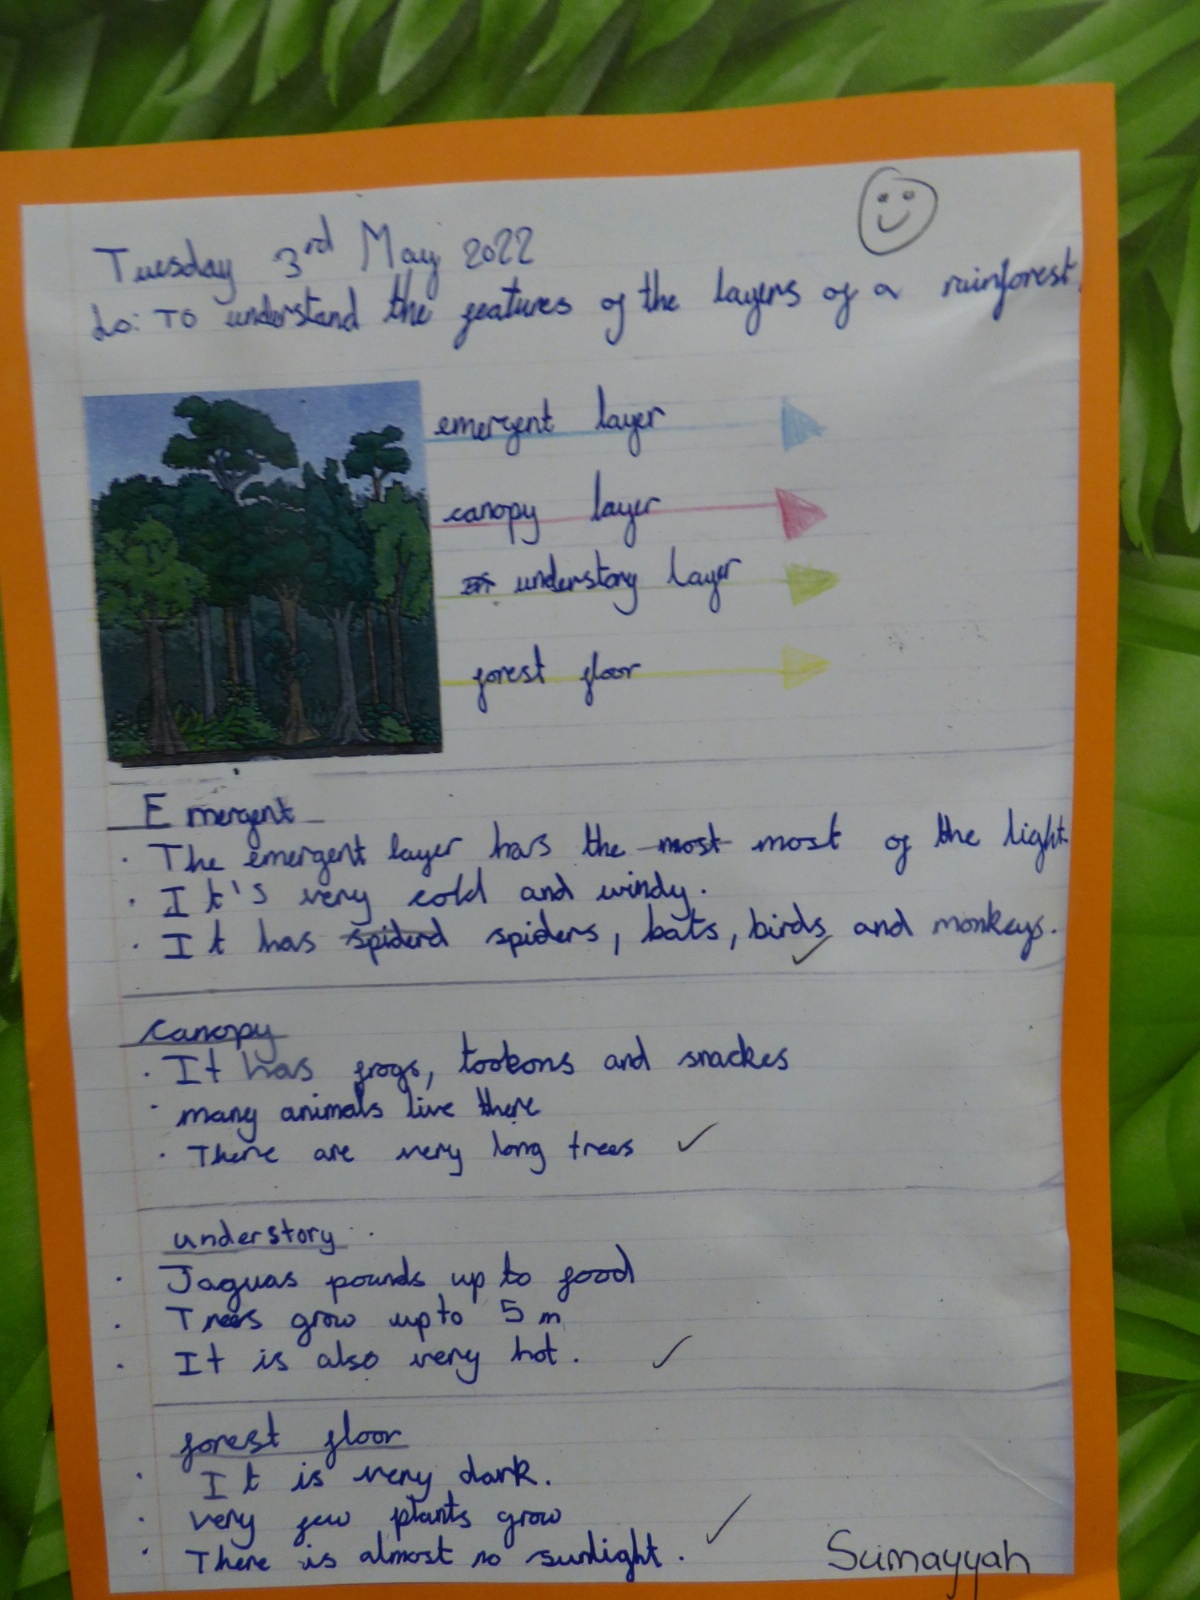 Tuesday 3rd May 2022
Lo: To understand the features of the layers of a rainforest.
emergent layer
canopy layer
understory layer
forest floor
Emergent
· The emergent layer has the most most of the light
· It's very cold and windy.
· It has spiderd spiders, bats, birds and monkeys.
canopy
· It has frogs, tookons and snackes
· many animals live there
· There are very long trees
understory
· Jaguas pounds up to food
· Trees grow up to 5 m
· It is also very hot.
forest floor
· It is very dark.
· very few plants grow
· There is almost no sunlight.
Sumayyah